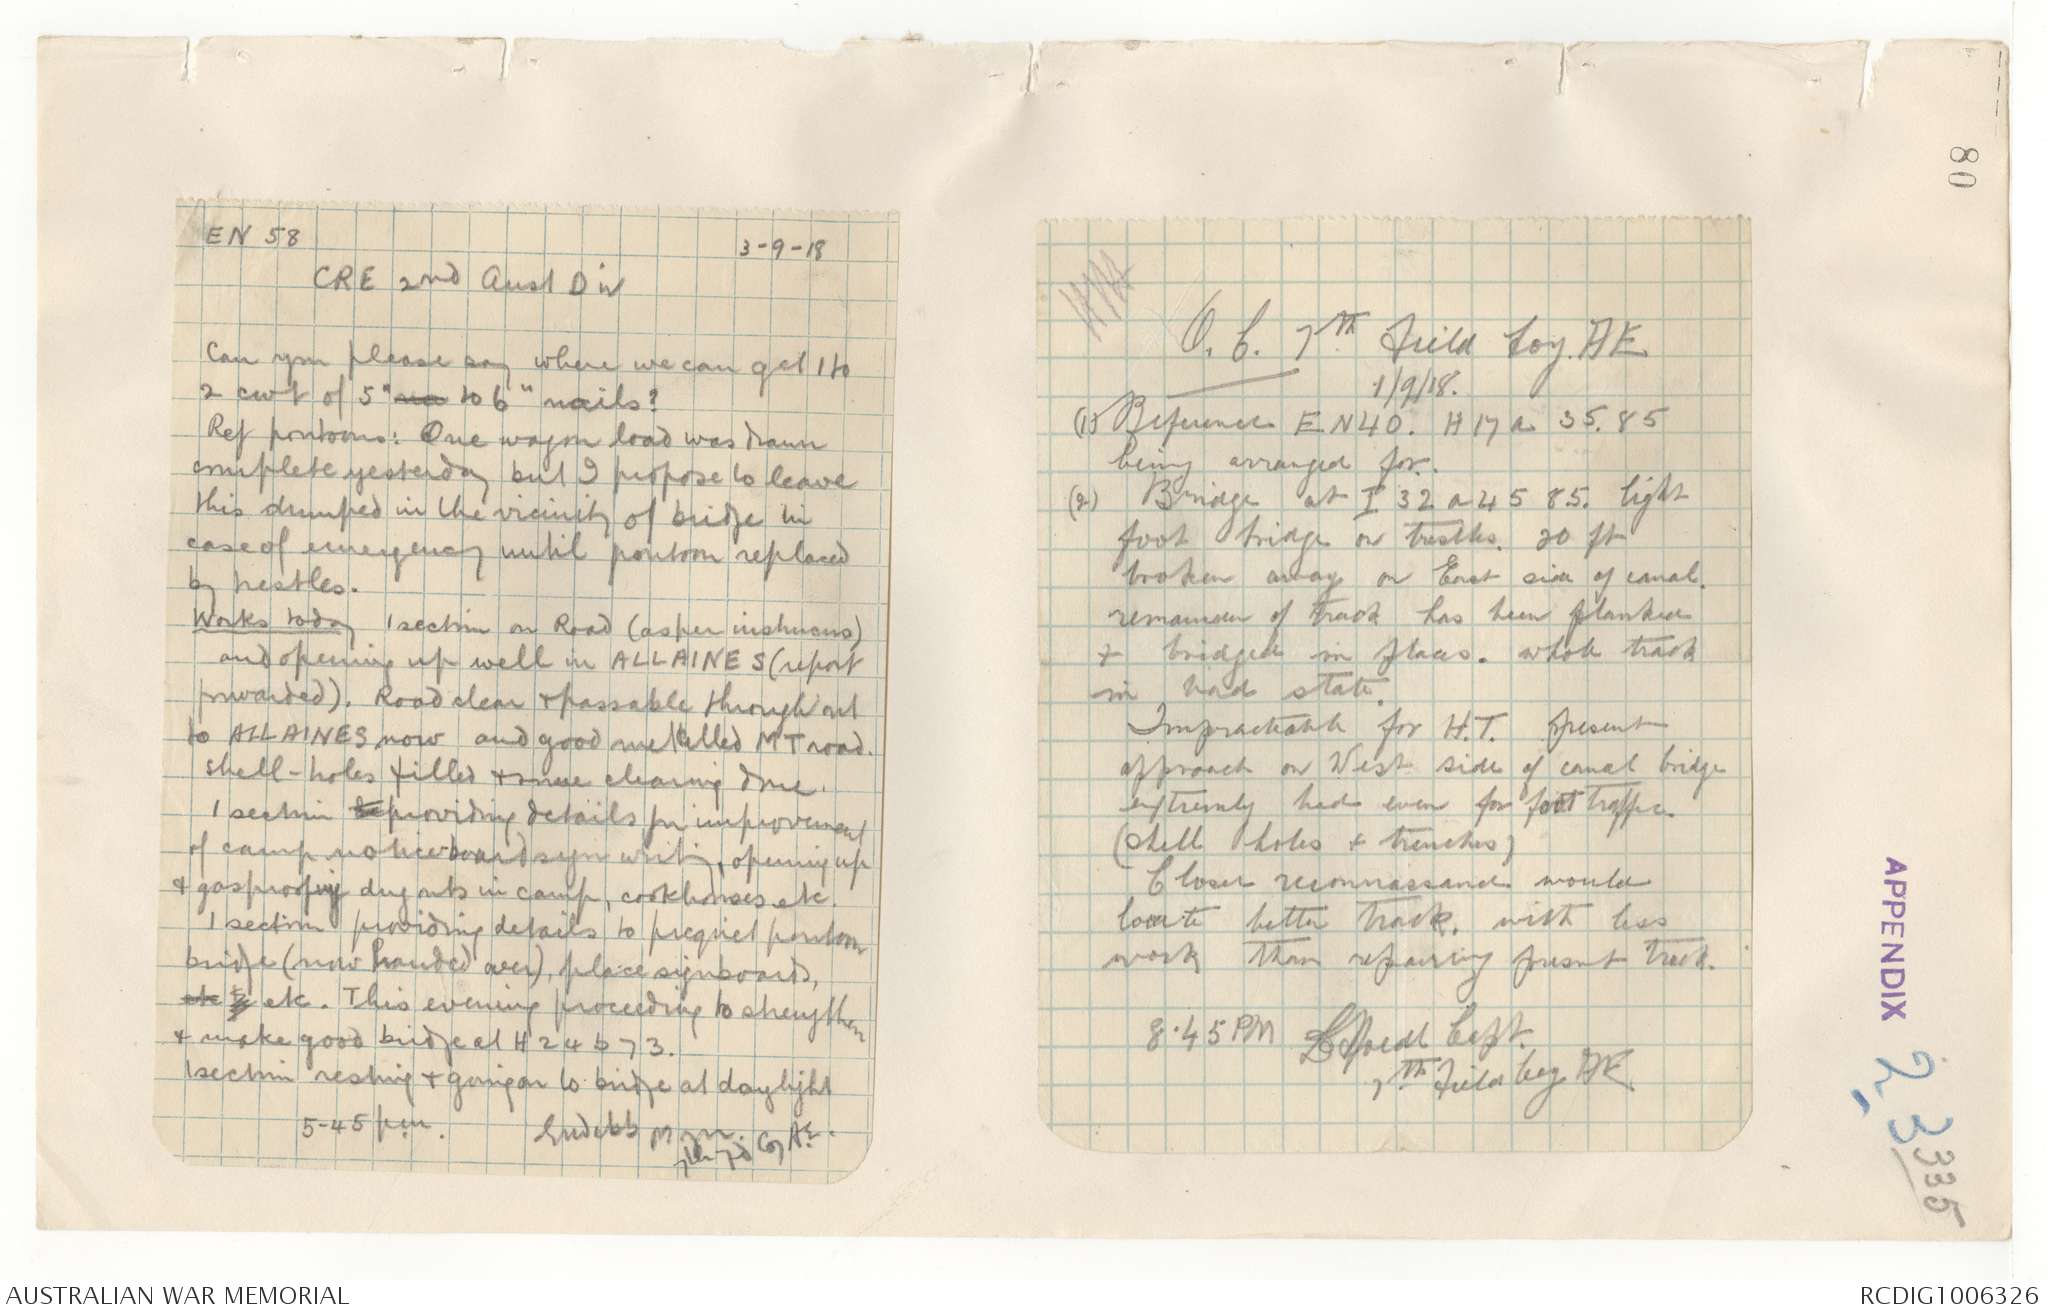 EN 58
3-9-18
CRE 2nd Aust Div
Can you please say where we can get 1 to
2 cwt of 5" to 6" nails?
Ref pontoons: One wagon load was drawn
complete yesterday but I propose to leave
this dumped in the vicinity of bridge in
case of emergency until pontoon replaced
by trestles.
Works today 1 section on Road (as per instructions)
and opening up well in ALLAINES (report
forwarded). Road clear & passable throughout
to ALLAINES now and good metalled MT road.
Shell-holes filled & some clearing done.
1 section providing details for improvement
of camp notice-board sign writing, opening up
& gasproofing dugouts in camp, cookhouses etc.
1 section providing details to picquet pontoon
bridge (now handed over), place signboards,
etc. This evening proceeding to strengthen
& make good bridge at H24 b 73.
1 section resting & going on to bridge at daylight
5-45 pm.
7th Fd Coy AE.
O. C. 7th Field Coy. AE
1/9/18.
(1) Reference EN40. H17a 35.85
being arranged for.
(2) Bridge at I 32 a 45 85. light
foot bridge on trestles. 20 ft
broken away on East side of canal.
remainder of track has been planked
& bridged in places. whole track
in bad state.
Impracticable for H.T. present
approach on West side of canal bridge
extremely bad even for foot traffic.
(shell holes & trenches)
Closer reconnassance would
locate better track. with less
work than repairing present track.
8.45 PM Capt.
7th Field Coy AE
80
APPENDIX
2. 3335
AUSTRALIAN WAR MEMORIAL
RCDIG1006326